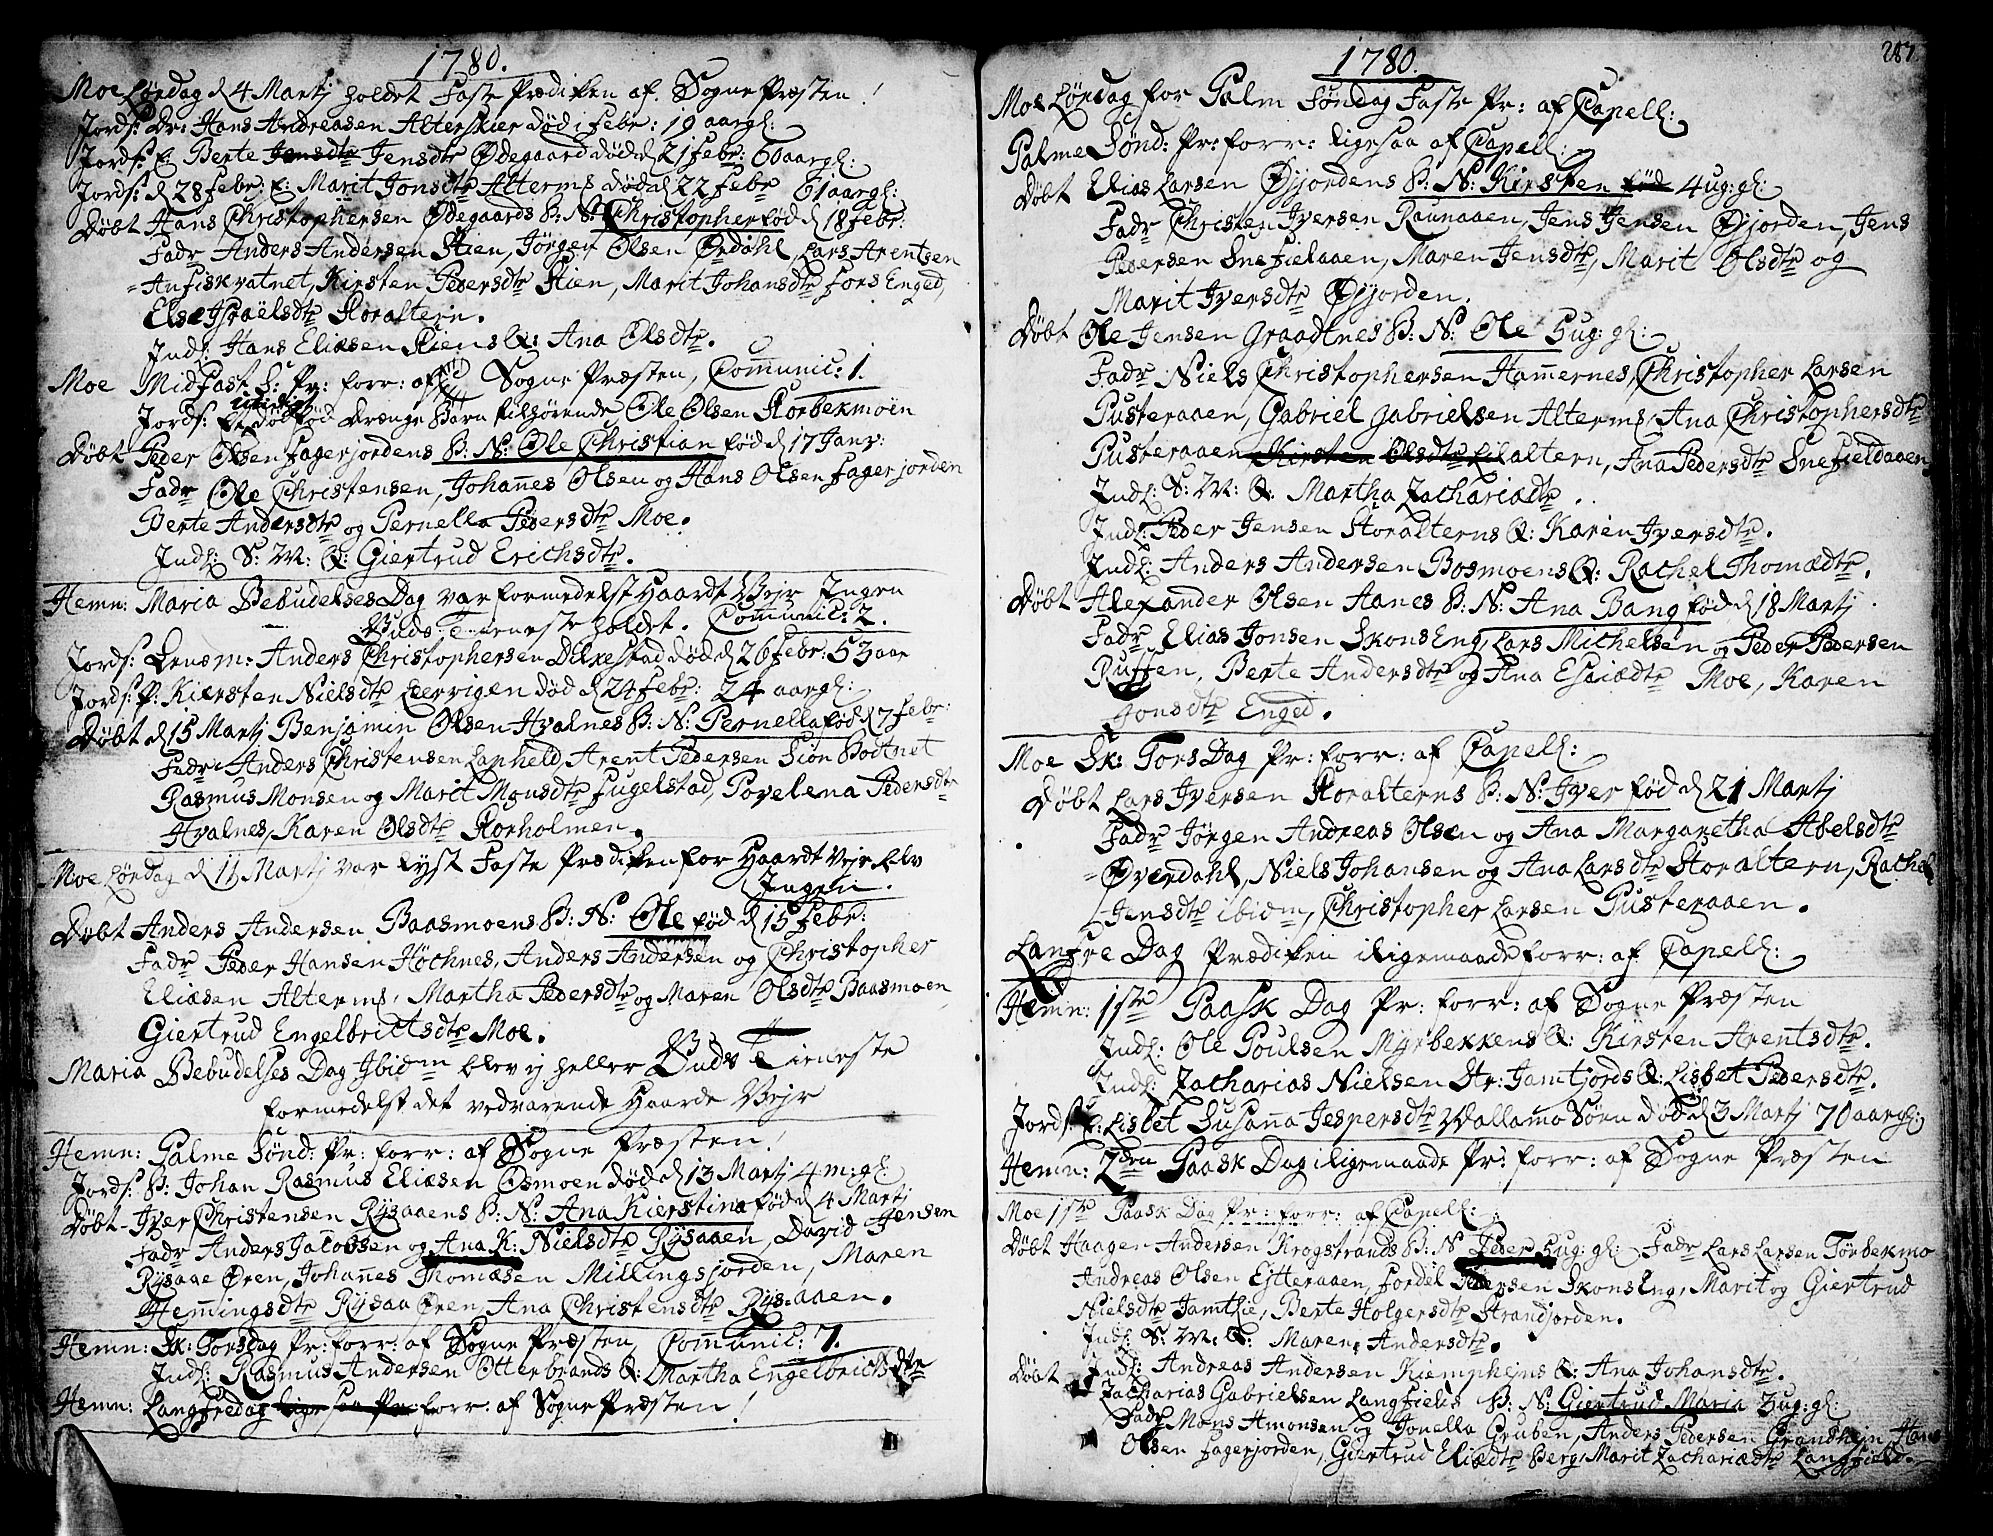 1780.
Moe Løndag d 4 Martj holdet Faste Prædiken af Sogne Præsten!
Jords: Dr: Hans Andreasen Alterskier død i Febr: 19 aar gl:
Jords: E: Berte Jensdtr Jensdtr Ødegaard død d 21 Febr: 60 aar gl:
Jords: d 28 Febr: E: Marit Jonsdtr Alterms død d 22 Febr 61 aar gl:
Døbt Hans Christophersen Ødegaards B: N: Christopher fød d 18 Febr:
Fadr Anders Andersen Stien, Jørgen Olsen Ørdahl, Lars Arentsen
Anfiskvatnet, Kirsten Pedersdtr Stien, Marit Johansdtr Fors Enged,
Else Israëlsdtr Storaltern.
Indl: Hans Eliæsen Stiens Q: Ana Olsdtr.
Moe MidFast S: Pr: forr: af Sogne Præsten, Communic: 1.
Jords: Et dødfød Drænge Barn tilhørende Ole Olsen Storbekmoen
Døbt Peder Olsen Fagerjordens B: N: Ole Christian fød d 17 Janv:
Fadr Ole Christensen, Johannes Olsen og Hans Olsen Fagerjorden
Berte Andersdtr og Pernella Pedersdtr Moe.
Indl: S: M: Q: Giertrud Erichsdtr.
Hemn: Maria Bebudelses Dag var formedelst Haardt Vejr Ingen
Guds Tieneste holdet. Communic: 2.
Jords: Lensm: Anders Christophersen Dilkestad død d 26 Febr: 53 aar
Jords: P: Kiersten Nielsdtr Leervigen død d 24 Febr: 24 aar gl:
Døbt d 15 Martj Benjamin Olsen Hvalnes B: N: Pernella fød d 7 Febr:
Fadr Anders Christensen Lapheld, Arent Pedersen Sion Bodtnet
Rasmus Monsen og Marit Monsdtr Fugelstad, Povelena Pedersdtr
Hvalnes, Karen Olsdtr Storholmen.
Moe Løndag d 11 Martj var lyst Faste Prædiken for Haardt Vejr blev
Ingen.
Døbt Anders Andersen Baasmoens B: N: Ole fød d 15 Febr:
Fadr Peder Hansen Høchnes, Anders Andersen og Christopher
Eliæsen Alterms, Martha Pedersdtr og Maren Olsdtr Baasmoen
Giertrud Engelbrittsdtr Moe.
Maria Bebudelses Dag Ibidm blev ej heller Guds Tieneste
formedelst det vedvarende Haarde Vejr
Hemn: Palme Sønd: Pr: forr: af Sogne Præsten!
Jords: B: Johan Rasmus Eliæsen Osmoen død d 13 Martj 4 m: gl:
Døbt Iver Christensen Rysaaens B: N: Ana Kierstina fød d 4 Martj
Fadr Anders Jacobsen og Ana K: Nielsdtr Rysaaen, David Jensen
Rysaae Øren, Johannes Thomæsen Millingsjorden, Maren
Hemmingsdtr Rysaa Øren, Ana Christensdtr Rysaaen.
Hemn: Sk: Torsdag Pr: forr: af Sogne Præsten, Communic: 7.
Indl: Rasmus Andersen Otterbrands Q: Martha Engelbrichsdtr
Hemn: Langfredag lige saa Pr: forr: af Sogne Præsten!
1780.
287
Moe Løndag for Palm Søndag Faste Pr: af Capell:
Palme Sønd: Pr: forr: ligesaa af Capell:
Døbt Elias Larsen Øyjordens B: N: Kirsten fød 4 ug: gl:
Fadr Christen Iversen Raunaaen, Jens Jensen Øyjorden, Jens
Pedersen Snefielaaen, Maren Jensdtr, Marit Olsdtr og
Marit Iversdtr Øyjorden.
Døbt Ole Jensen Graadtnes B: N: Ole 3 ug: gl:
Fadr Niels Christophersen Hamernes, Christopher Larsen
Pusteraaen, Gabriel Gabrielsen Alterms, Ana Christophersdtr
Pusteraaen Kirsten Olsdtr Lilaltern, Ana Pedersdtr Snefieldaaen
Indl: S: M: Q: Martha Zachariædtr.
Indl: Peder Jensen Storalterns Q: Karen Iversdtr.
Indl: Anders Andersen Bosmoens Q: Rachel Thomædtr.
Døbt Alexander Olsen Aanes B: N: Ana Bang fød d 18 Martj
Fadr Elias Jonsen Skons Eng, Lars Michelsen og Peder Pedersen
Ruffen, Berte Andersdtr og Ana Esaiædtr Moe, Karen
Jonsdtr Enged.
Moe Sk: Tors Dag Pr: forr: af Capell:
Døbt Lars Iversen Storalterns B: N: Iver fød d 21 Martj
Fadr Jørgen Andreas Olsen og Ana Margaretha Abelsdtr
Øverdahl, Niels Johansen og Ana Larsdtr Storaltern, Rachel
Jensdtr ibidm, Christopher Larsen Pusteraaen.
Langfre Dag Prædiken iligemaade forr: af Capell:
Hemn: 1ste Paask Dag Pr: forr: af Sogne Præsten
Indl: Ole Poulsen Myrbekkens Q: Kirsten Arentsdtr.
Indl: Zacharias Nielsen Str: Jamtjords Q: Lisbet Pedersdtr.
Jords: E: Lisbet Susanna Jespersdtr Wallamo Sørn død d 3 Martj 70 aar gl:
Hemn: 2den Paask Dag iligemaade Pr: forr: af Sogne Præsten
Moe 1ste Paask Dag Pr: forr: af Capell:
Døbt Haagen Andersen Krogstrands B: N: Peder 3 ug: gl: Fadr Lars Larsen Tørbekmo
Andreas Olsen Eytteraaen, Fordel Pedersen Skons Eng, Marit og Giertrud
Nielsdtr Jamtlie, Berte Holgersdtr Strandjorden.
Indl: S: M: Q: Maren Andersdtr.
Indl: Andreas Andersen Kiemphejns Q: Ana Johansdtr.
Døbt Zacharias Gabrielsen Langfields B: N: Giertrud Maria 3 ug: gl:
Fadr Mons Amonsen og Jonella Gruben, Anders Pedersen Grandhejn, Hans
Olsen Fagerjorden, Giertrud Eliædtr Berg, Marit Zachariædtr Langfield.